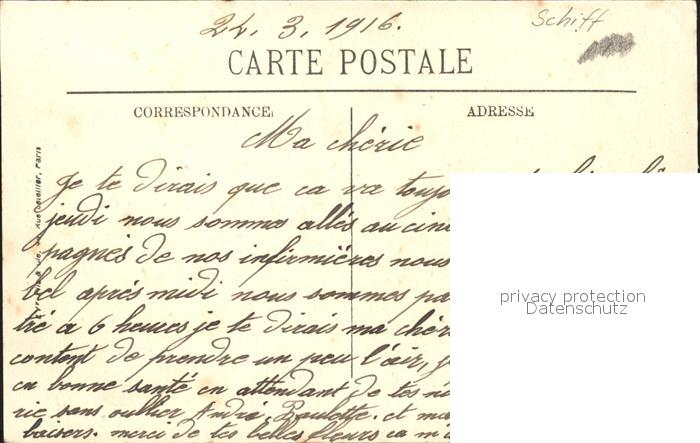 24. 3. 1916.
Schiff
CARTE POSTALE
CORRESPONDANCE
ADRESSE
Ma chérie
Je te dirais que ca va toujo
jeudi nous sommes allés au cine
pagnés de nos infirmières nous
bel après midi nous sommes
tré a 6 heures je te dirais ma chér
content de prendre un peu l'air, j
en bonne santé en attendant de tes
rie sans oublier André, Paulette. et ma
baisers. merci de tes belles fleurs ca m'
privacy protection
Datenschutz